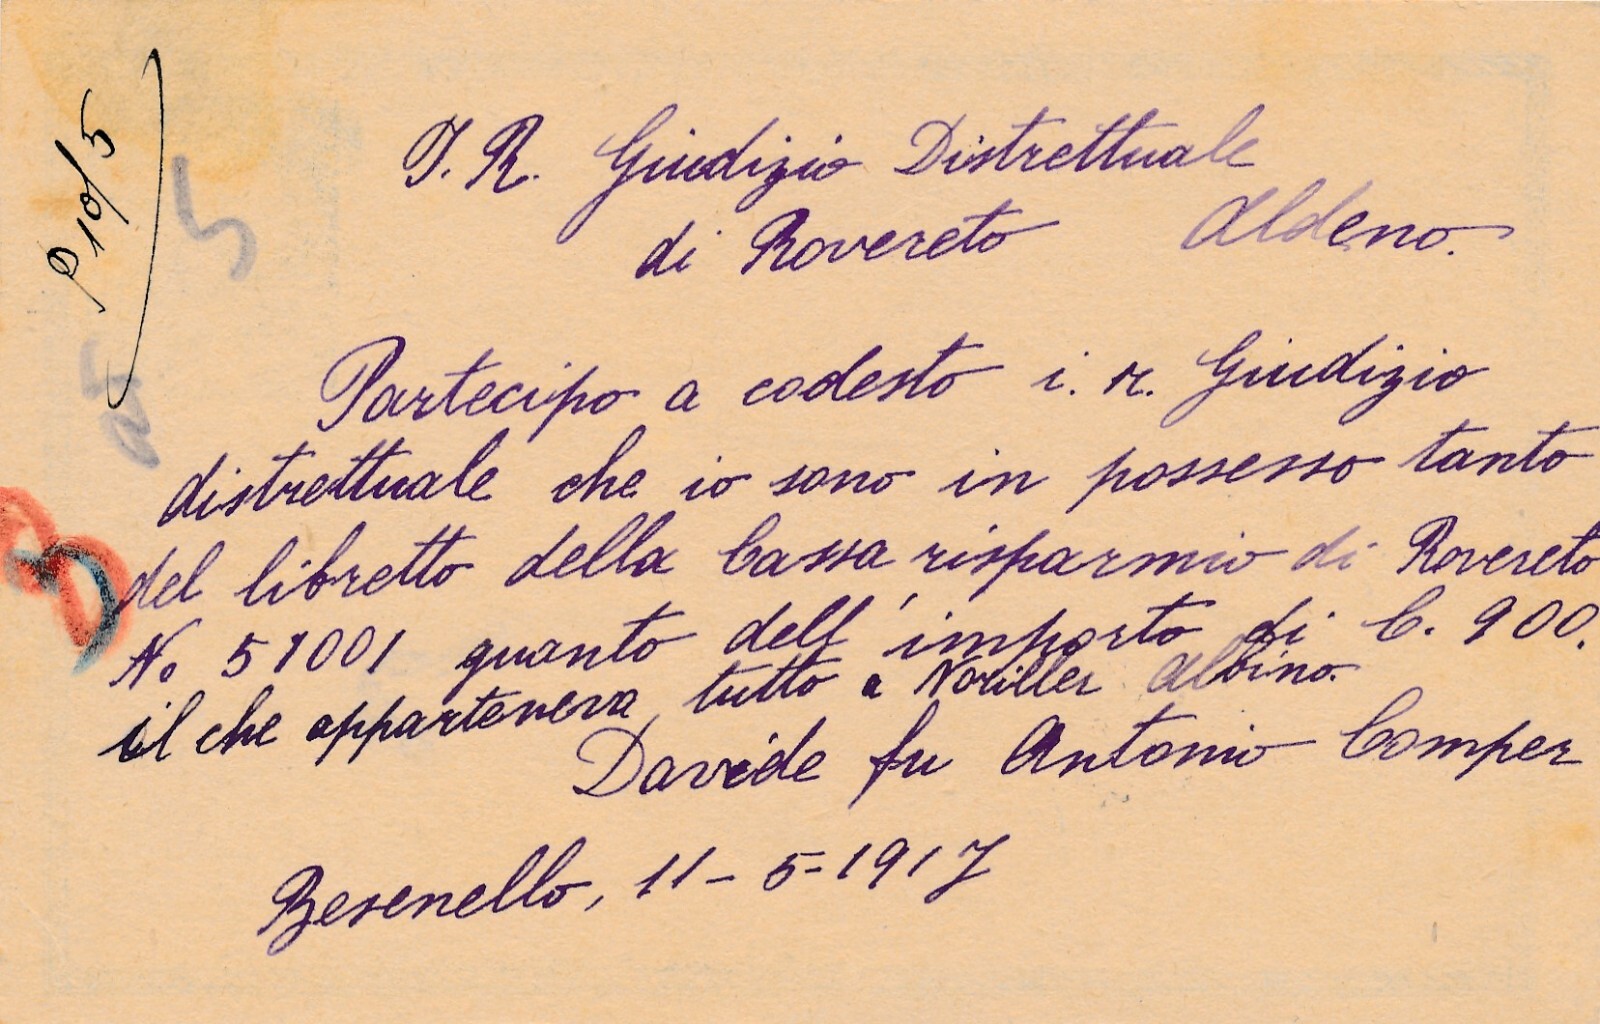 P 10/5
I. R. Giudizio Distrettuale
di Rovereto Aldeno.
Partecipo a codesto i. r. Giudizio
distrettuale che io sono in possesso tanto
del libretto della Cassa risparmio di Rovereto
No 51001 quanto dell'importo di C. 900.
il che apparteneva tutto a Noriller Albino.
Davide fu Antonio Comper
Besenello, 11-5-1917